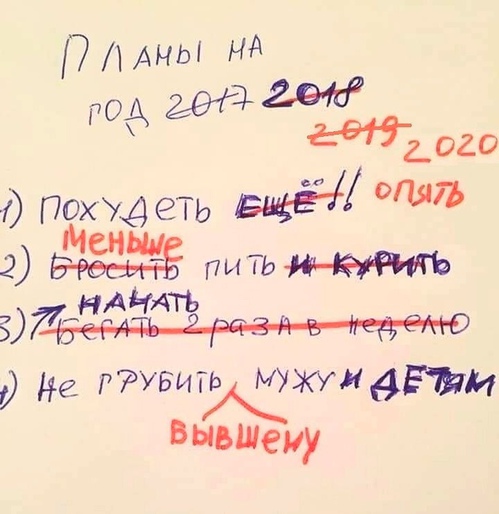 Планы на
год 2017 2018
2019 2020
1) похудеть ещё!! опять
меньше
2) бросить пить и курить
начать
3) бегать 2 раза в неделю
4) не грубить мужу и детям
бывшему